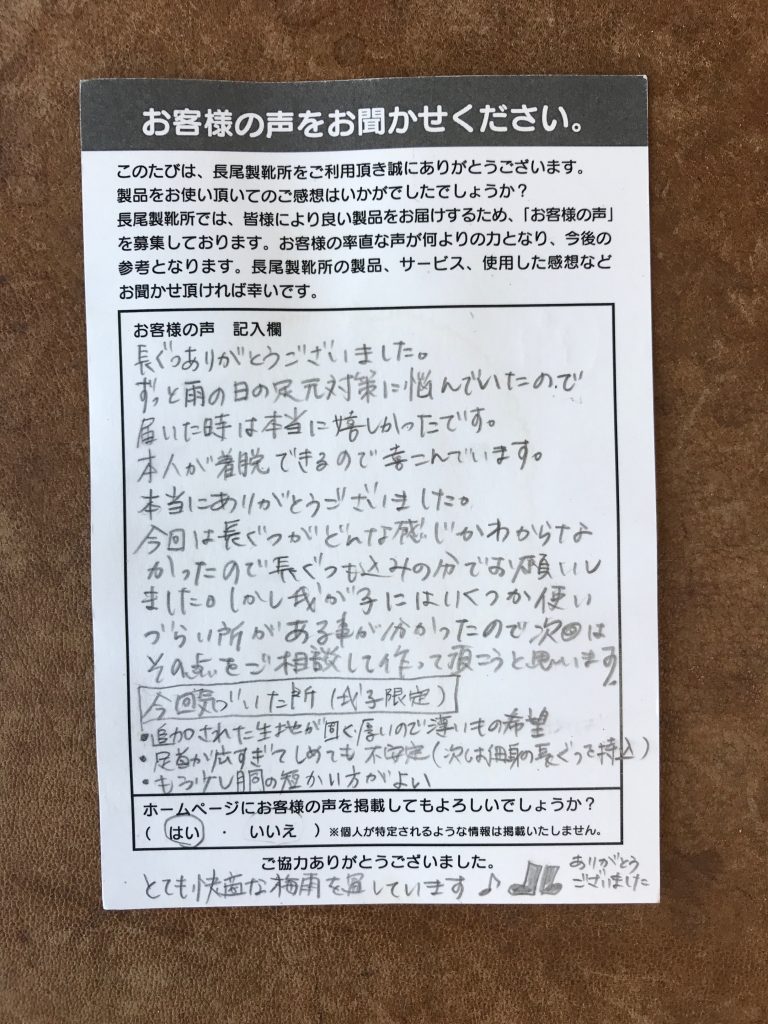 お客様の声をお聞かせください。
このたびは、長尾製靴所をご利用頂き誠にありがとうございます。
製品をお使い頂いてのご感想はいかがでしたでしょうか？
長尾製靴所では、皆様により良い製品をお届けするため、「お客様の声」
を募集しております。お客様の率直な声が何よりの力となり、今後の
参考となります。長尾製靴所の製品、サービス、使用した感想など
お聞かせ頂ければ幸いです。
お客様の声　記入欄
長ぐつありがとうございました。
ずっと雨の日の足元対策に悩んでいたので
届いた時は本当に嬉しかったです。
本人が着脱できるので喜こんでいます。
本当にありがとうございました。
今回は長ぐつがどんな感じかわからな
かったので長ぐつも込みの分でお願いし
ました。しかし我が子にはいくつか使い
づらい所がある事が分かったので次回は
その点をご相談して作って頂こうと思います。
今回気づいた所（我子限定）
・追加された生地が固く厚いので薄いもの希望
・足首が広すぎてしめても不安定（次は細身の長ぐつを持込）
・もう少し胴の短かい方がよい
ホームページにお客様の声を掲載してもよろしいでしょうか？
（ はい ・ いいえ ）※個人が特定されるような情報は掲載いたしません。
ご協力ありがとうございました。
とても快適な梅雨を過しています♪
ありがとう
ございました